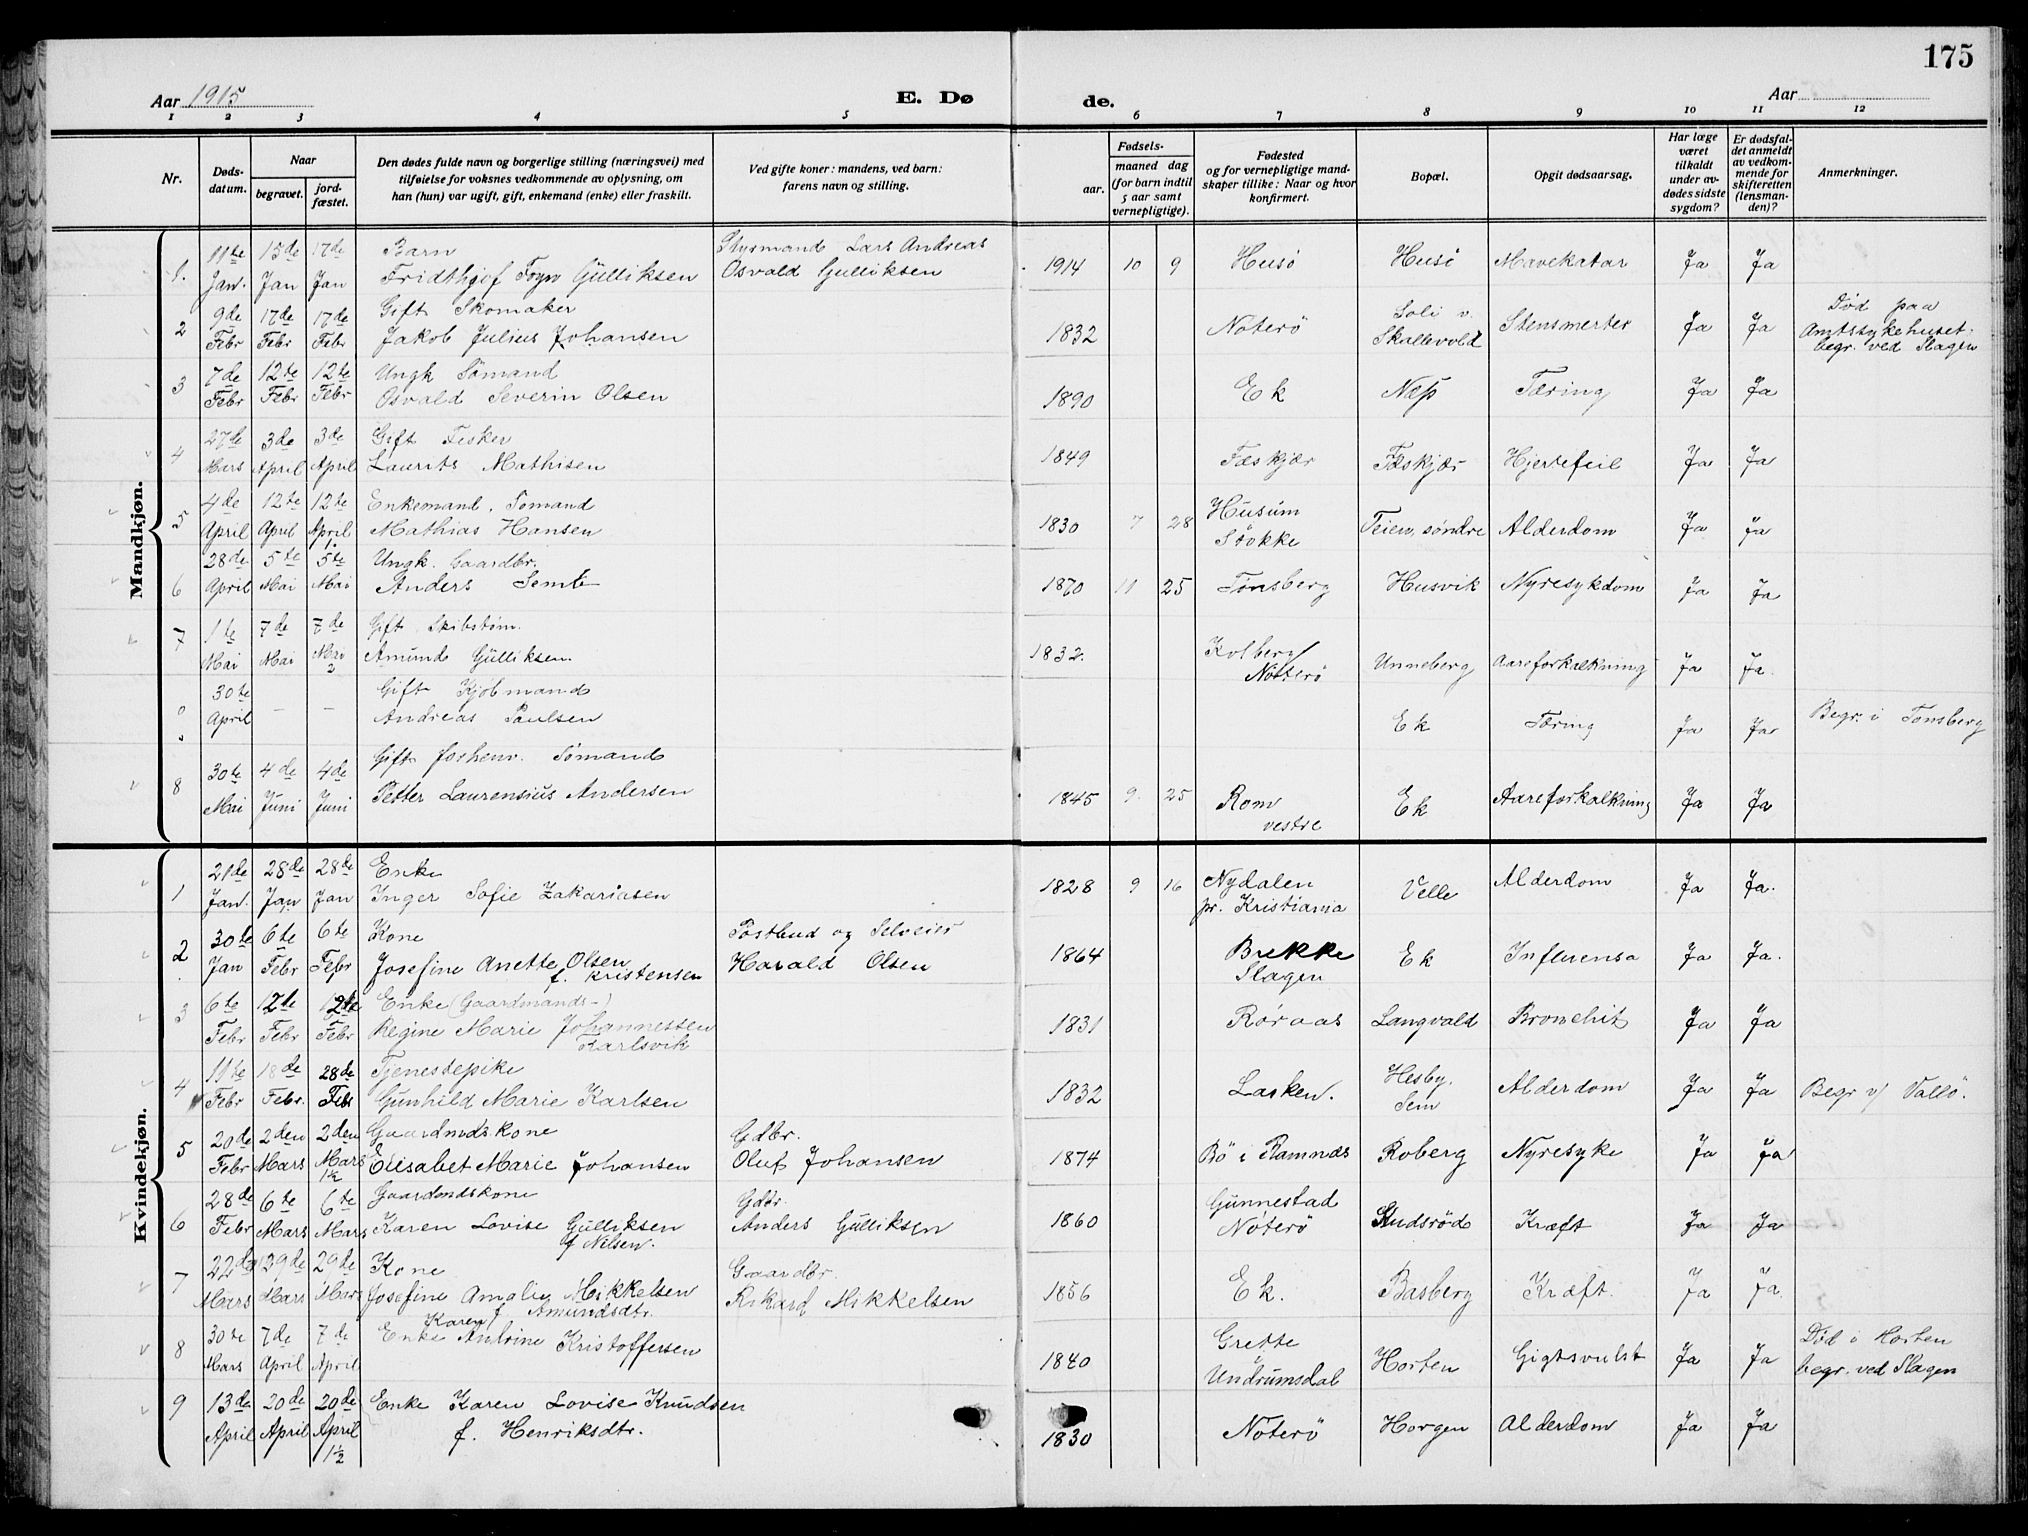 175
Aar 1915
E. Dø
de.
Aar
1 2 3 4 5 6 7 8 9 10 11 12
Nr.
Døds-
datum.
Naar
begravet.
jord-
fæstet.
Den dødes fulde navn og borgerlige stilling (næringsvei) med
tilføielse for voksnes vedkommende av oplysning, om
han (hun) var ugift, gift, enkemand (enke) eller fraskilt.
Ved gifte koner: mandens, ved barn:
farens navn og stilling.
Fødsels-
aar.
maaned dag
(for barn indtil
5 aar samt
vernepligtige).
Fødested
og for vernepligtige mand-
skaper tillike: Naar og hvor
konfirmert.
Bopæl.
Opgit dødsaarsag.
Har læge
været
tilkaldt
under av-
dødes sidste
sygdom?
Er dødsfal-
det anmeldt
av vedkom-
mende for
skifteretten
(lensman-
den)?
Anmerkninger.
Mandkjøn.
11te 15de 17de Barn Styrmand Lars Andreas
1. Jan. Jan Jan Fridthjof Foyn Gulliksen Osvald Gulliksen 1914 10 9 Husö Husö Mavekatar Ja Ja
9de 17de 17de Gift Skomaker Soli v. Död paa
2 Febr Febr Febr Jakob Julius Johansen 1832 Noterö Skallevold Stensmerter Ja Ja Amtssykehuset.
begr. ved Slagen
7de 12te 12te Ungk Sömand
3 Febr Febr Febr Osvald Severin Olsen 1890 Ek Næss Tæring Ja Ja
27de 3de 3de Gift Fisker
4 Mars April April Laurits Mathisen 1849 Fæskjær Fæskjær Hjertefeil Ja Ja
4de 12te 12te Enkemand. Sömand Husum
5 April April April Mathias Hansen 1830 7 28 Stokke Teien, søndre Alderdom Ja Ja
28de 5te 5te Ungk. Gaardbr.
6 April Mai Mai Anders Semb 1870 11 25 Tønsberg Husvik Nyresykdom Ja Ja
1te 7de 7de Gift Skibstøm. Kolberg
7 Mai Mai Mai Amund Gulliksen. 1832. Nøtterö Unneberg Aareforkalkning Ja Ja.
2
30te Gift Kjöbmand
April — — Andreas Paulsen Ek Tæring Ja Ja Begr. i Tønsberg
30te 4de 4de Gift forhenv. Sömand
8 Mai Juni Juni Petter Laurensius Andersen 1845 9. 25 Rom Ek Aareforkalkning Ja Ja
vestre
Kvindekjøn.
21de 28de 28de Enke Nydalen
1 Jan. Jan Jan Inger Sofie Zakariasen 1828 9 16 pr. Kristiania Velle Alderdom Ja Ja.
30te 6te 6te Kone Postbud og Selveier Brekke
2 Jan Febr Febr Josefine Anette Olsen Harald Olsen 1864 Slagen Ek Influensa Ja Ja.
f. Kristensen
6te 12te 12te Enke (Gaardmands-)
3 Febr Febr Febr Regine Marie Johannessen 1831 Røraas Langvald Bronchit Ja Ja
Karlsvik
11te 18de 28de Tjenestepike Hesby.
4 Febr Febr. Febr Gunhild Marie Karlsen 1832 Lasken. Sem Alderdom Ja Ja Begr v/ Vallö.
20de 2den 2den Gaardmdskone Gdbr.
5 Febr Mars Mars Elisabet Marie Johansen Oluf Johansen 1874 Bö i Ramnæs Roberg Nyresyke Ja Ja
1½
28de 6te 6te Gaardmdskone Gdbr. Gunnestad
6 Febr Mars Mars Karen Lovise Gulliksen Anders Gulliksen 1860 Nøterö Skudsröd Kræft Ja Ja
f Nilsen.
22de 29de 29de Kone Gaardbr.
7 Mars Mars Mars Josefine Amalie Mikkelsen Rikard Mikkelsen 1856 Ek. Basberg Kræft. Ja Ja.
f Amundsdtr.
30te 7de 7de Enke Karen Antrine Grette Död i Horten
8 Mars April April Kristoffersen 1840 Undrumsdal Horten Gigtsvulst Ja Ja begr. ved Slagen
9 13de 20de 20de Enke Karen Lovise Knudsen
April April April f. Henriksdtr. 1830 Nøterö Horgen Alderdom Ja Ja
1½